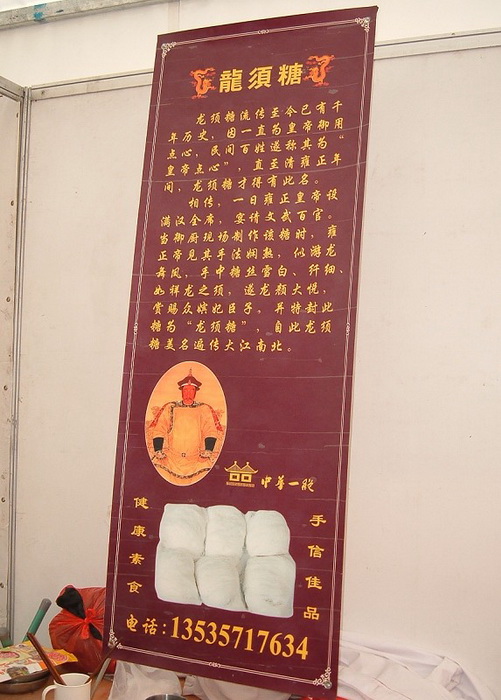 龍須糖
龙须糖流传至今已有千
年历史，因一直为皇帝御用
点心，民间百姓遂称其为“
皇帝点心”，直至清雍正年
间，龙须糖才得有此名。
相传，一日雍正皇帝设
满汉全席，宴请文武百官。
当御厨现场制作该糖时，雍
正帝见其手法娴熟，似游龙
舞凤，手中糖丝雪白、纤细、
如祥龙之须，遂龙颜大悦，
赏赐众嫔妃臣子。并特封此
糖为“龙须糖”，自此龙须
糖美名遍传大江南北。
中华一般
健康素食
手信佳品
电话:13535717634